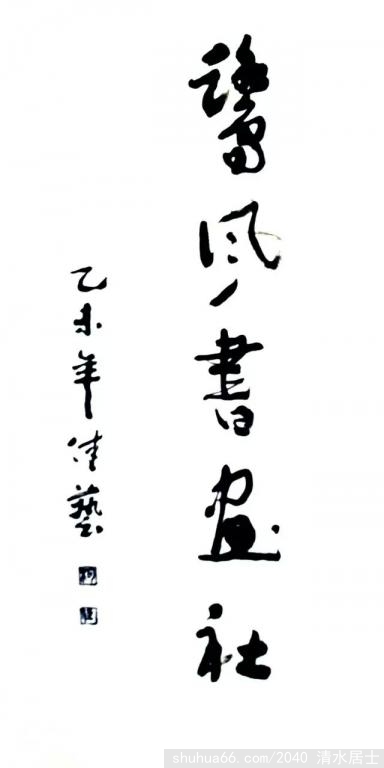 鷺风書画社
乙未年佳藝
shuhua66.com/2040 清水居士